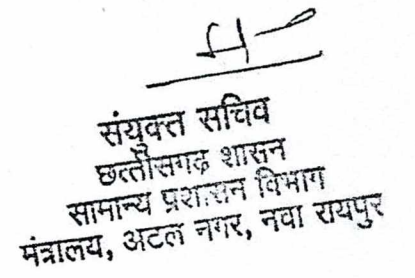 संयुक्त सचिव
छत्तीसगढ़ शासन
सामान्य प्रशासन विभाग
मंत्रालय, अटल नगर, नवा रायपुर